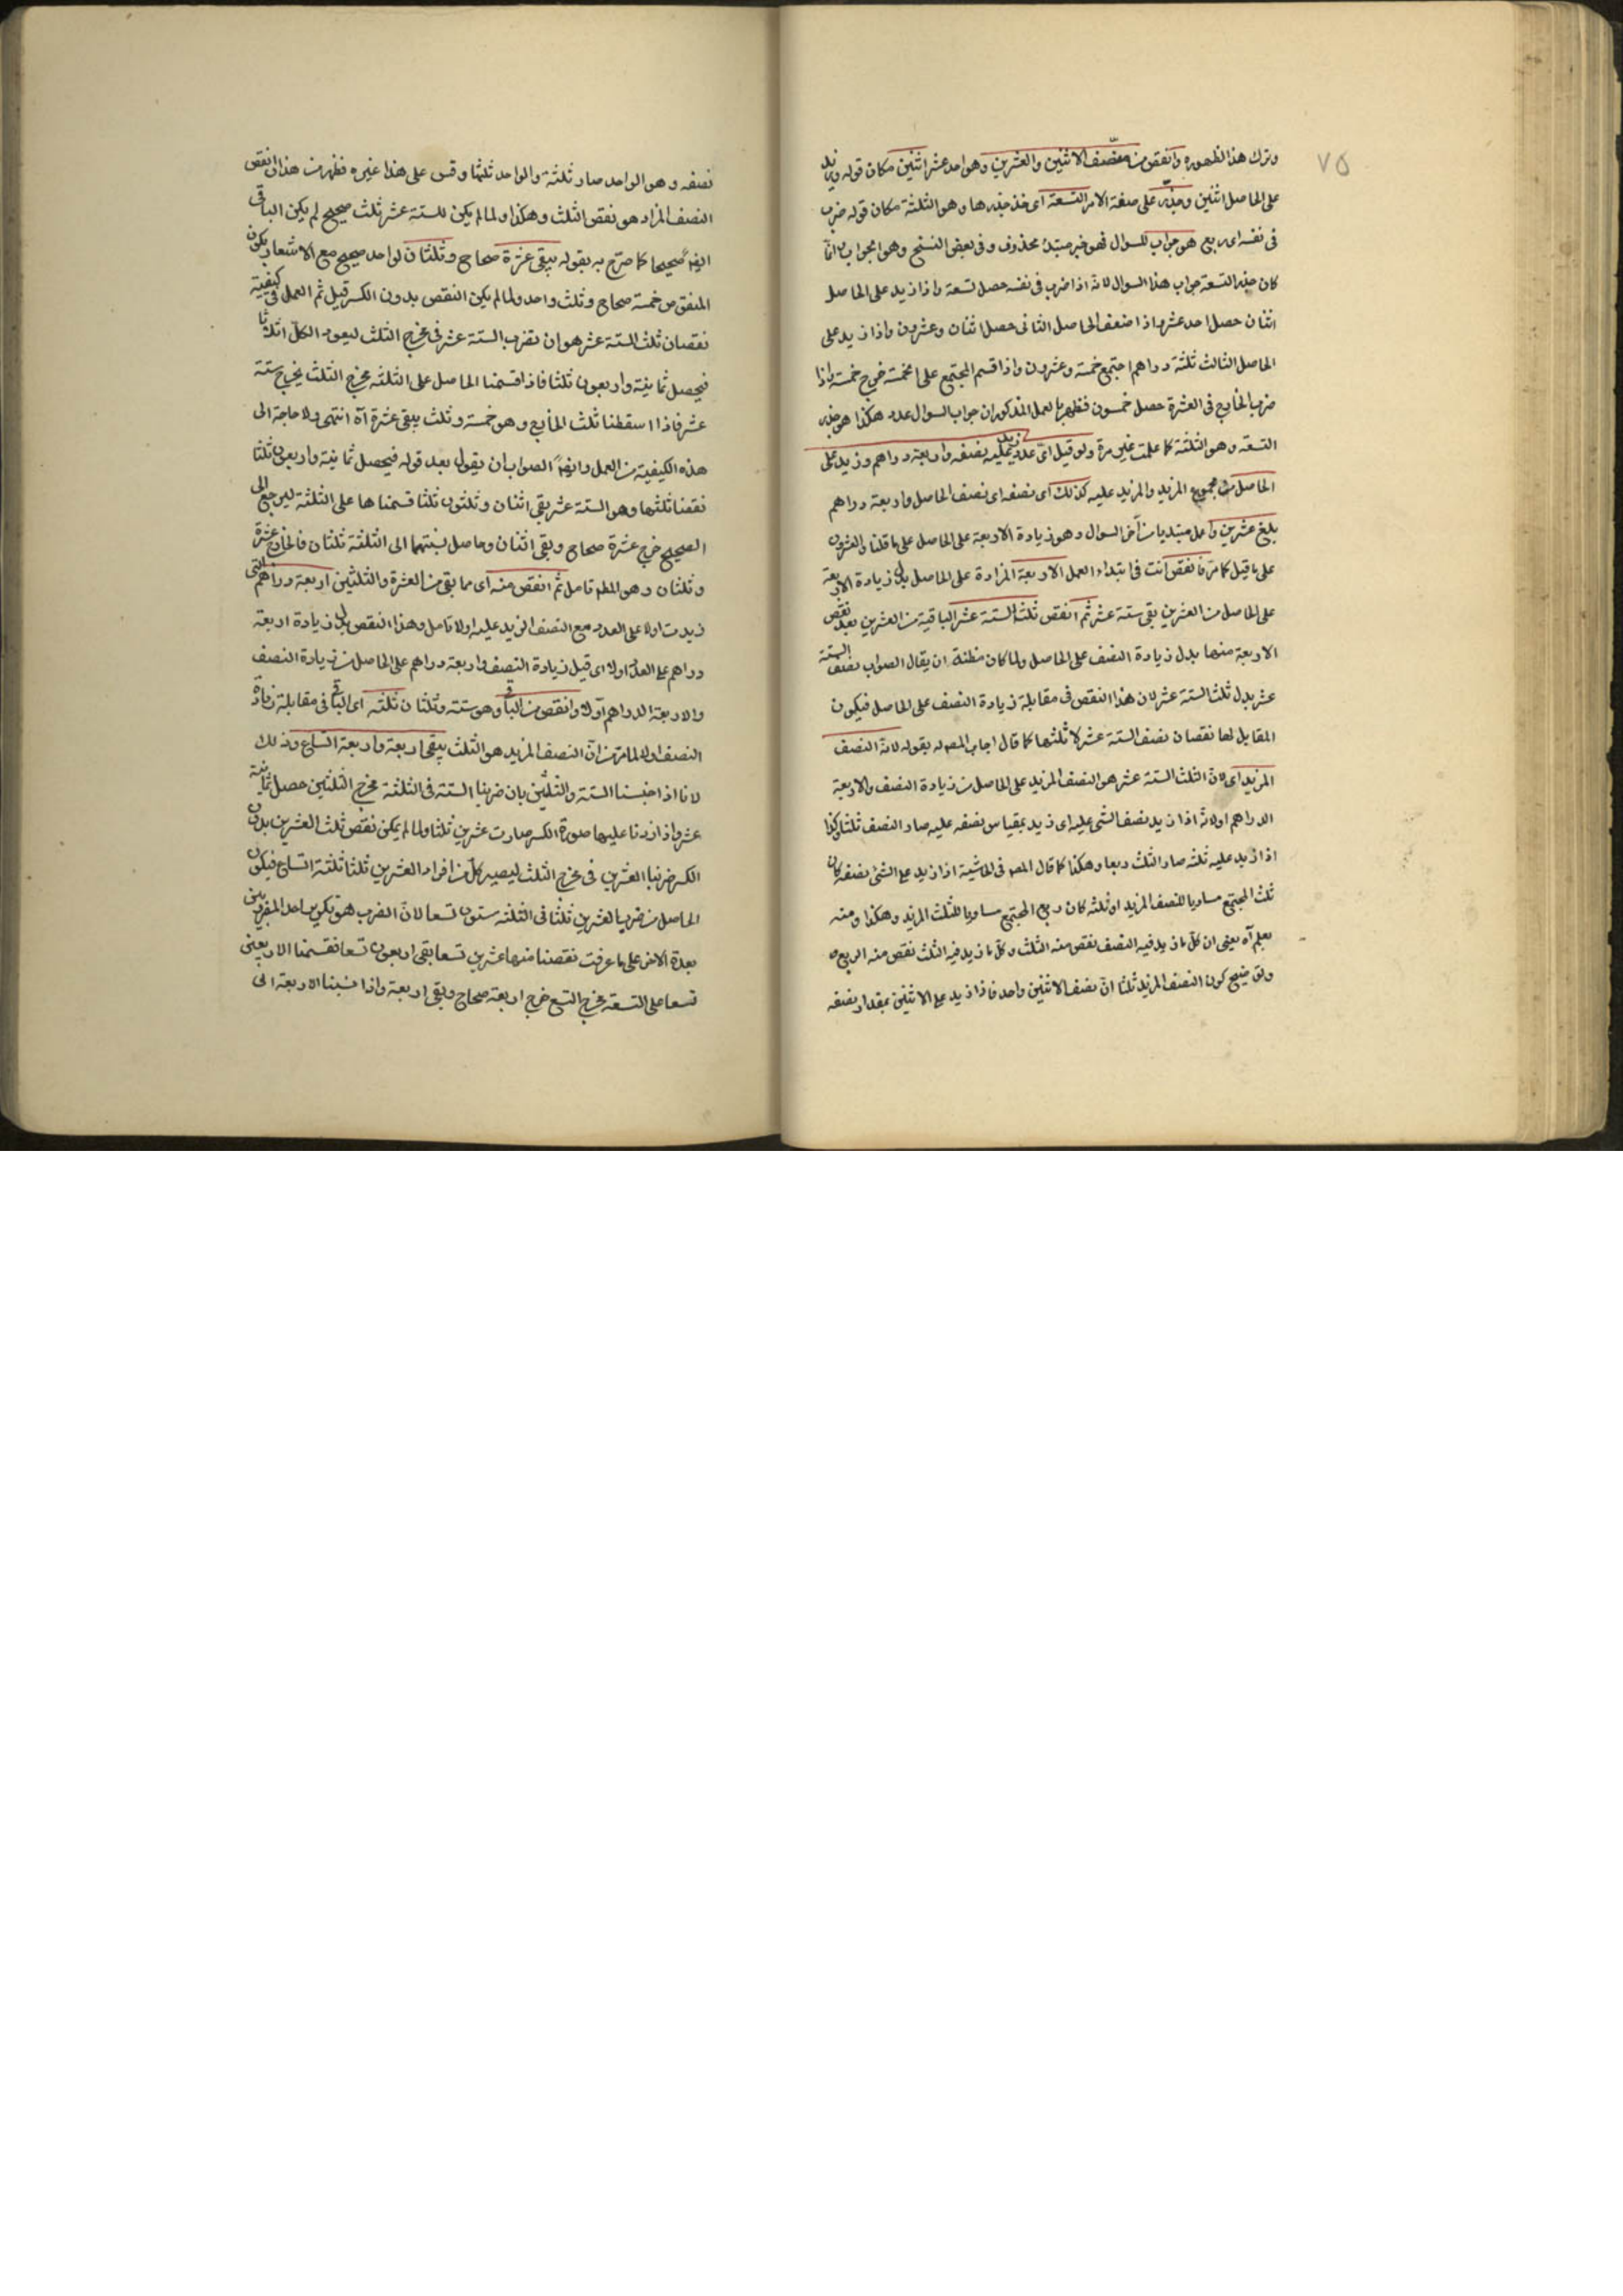 ٧٥
وترك هذا لظهوره وانقص من منصف الاثنين والعشرين وهو احد عشر اثنين مكان قوله وزيد
على الحاصل اثنين وجذر على صيغة الامر التسعة اى خذ جذرها وهو الثلثة مكان قوله ضرب
فى نفسه اى ربع هو جواب للسوال فهو خبر مبتدأ محذوف وفى بعض النسخ وهو الجواب انما
كان جذر التسعة جواب هذا السوال لانه اذا ضرب فى نفسه حصل تسعة واذا زيد على الحاصل
اثنان حصل احد عشر واذا ضعف الحاصل الثانى حصل اثنان وعشرون واذا زيد على
الحاصل الثالث ثلثة دراهم اجتمع خمسة وعشرون واذا قسم المجتمع على الخمسة خرج خمسة واذا
ضرب الخارج فى العشرة حصل خمسون فظهر بالعمل المذكور ان جواب السوال عدد هكذا هو جذر
التسعة وهو الثلثة كما علمت غير مرة ولو قيل اى عدد زيد عليه نصفه واربعة دراهم وزيد على
الحاصل من مجموع المزيد والمزيد عليه كذلك اى نصفه اى نصف الحاصل واربعة دراهم
بلغ عشرين واعمل مبتديا من آخر السوال وهو زيادة الاربعة على الحاصل على ما قلنا والعشرون
على ما قيل كما مر فانقص انت فى ابتداء العمل الاربعة المزادة على الحاصل بدل زيادة الاربعة
على الحاصل من العشرين بقى ستة عشر ثم انقص ثلث الستة عشر الباقية من العشرين بعد نقص
الاربعة منها بدل زيادة النصف على الحاصل ولما كان مظنة ان يقال الصواب نصف الستة
عشر بدل ثلث الستة عشر لان هذا النقص فى مقابلة زيادة النصف على الحاصل فيكون
المقابل لها نقصان نصف الستة عشر لا ثلثها كما قال اجاب المص له بقوله لانه النصف
المزيد اى لان الثلث الستة عشر هو النصف المزيد على الحاصل من زيادة النصف والاربعة
الدراهم اولا لانه اذا زيد نصف الشى عليه اى زيد بمقياس نصفه عليه صار النصف ثلثا وكذا
اذا زيد عليه ثلثه صار الثلث ربعا وهكذا كما قال المص فى الحاشية اذا زيد على الشئ نصفه كان
ثلث المجتمع مساويا للنصف المزيد او ثلثه كان ربع المجتمع مساويا للثلث المزيد وهكذا ومنه
يعلم آه يعنى ان كل ما زيد فيه النصف نقص منه الثلث وكل ما زيد فيه الثلث نقص منه الربع
وتوضيح كون النصف المزيد ثلثا ان نصف الاثنين واحد فاذا زيد على الاثنين بمقدار نصفه
نصفه وهو الواحد صار ثلثة والواحد ثلثها وقس على هذا غيره فظهر من هذا ان نقص
النصف المزاد هو نقص الثلث وهكذا ولما لم يكن للستة عشر ثلث صحيح لم يكن الباقى
ايضا صحيحا كما صرح به بقوله يبقى عشرة صحاح وثلثان لواحد صحيح مع الاشعار بكون
المنقوص خمسة صحاح وثلث واحد ولما لم يكن النقص بدون الكسر قيل ثم العمل فى كيفية
نقصان ثلث الستة عشر هو ان تضرب الستة عشر فى مخرج الثلث ليعود الكل اثلاثا
فيحصل ثمانية واربعون ثلثا فاذا قسمنا الحاصل على الثلثة مخرج الثلث يخرج ستة
عشر فاذا اسقطنا ثلث الخارج وهو خمسة وثلث يبقى عشرة آه انتهى ولا حاجة الى
هذه الكيفية من العمل وايضا الصواب ان يقول بعد قوله فيحصل ثمانية واربعون ثلثا
نقصنا ثلثها وهو الستة عشر بقى اثنان وثلثون ثلثا قسمناها على الثلثة ليرجع الى
الصحيح خرج عشرة صحاح وبقى اثنان وحاصل نسبتهما الى الثلثة ثلثان فالخارج عشرة
وثلثان وهو المط تامل ثم انقص منه اى مما بقى من العشرة والثلثين اربعة دراهم التى
زيدت اولا على العدد مع النصف المزيد عليه اولا تامل وهذا النقص بدل زيادة اربعة
دراهم على العدد اولا اى قيل زيادة النصف واربعة دراهم على الحاصل من زيادة النصف
والاربعة الدراهم اولا وانقص من الباقى وهو ستة وثلثان ثلثه اى الباقى فى مقابلة زيادة
النصف اولا لما مر من ان النصف المزيد هو الثلث يبقى اربعة واربعة اتساع وذلك
لانا اذا جنسنا الستة والثلثين بان ضربنا الستة فى الثلثة مخرج الثلثين حصل ثمانية
عشر واذا زدنا عليها صورة الكسر صارت عشرين ثلثا ولما لم يمكن نقص ثلث العشرين بدون
الكسر ضربنا العشرين فى مخرج الثلث ليصير كل من افراد العشرين ثلثا ثلثة اتساع فيكون
الحاصل من ضرب العشرين ثلثا فى الثلثة ستون تسعا لان الضرب هو تكرير احد المضروبين
بعدة الاخر على ما عرفت نقصنا منها عشرين تسعا بقى اربعون تسعا فقسمنا الاربعين
تسعا على التسعة مخرج التسع خرج اربعة صحاح وبقى اربعة واذا نسبنا الاربعة الى